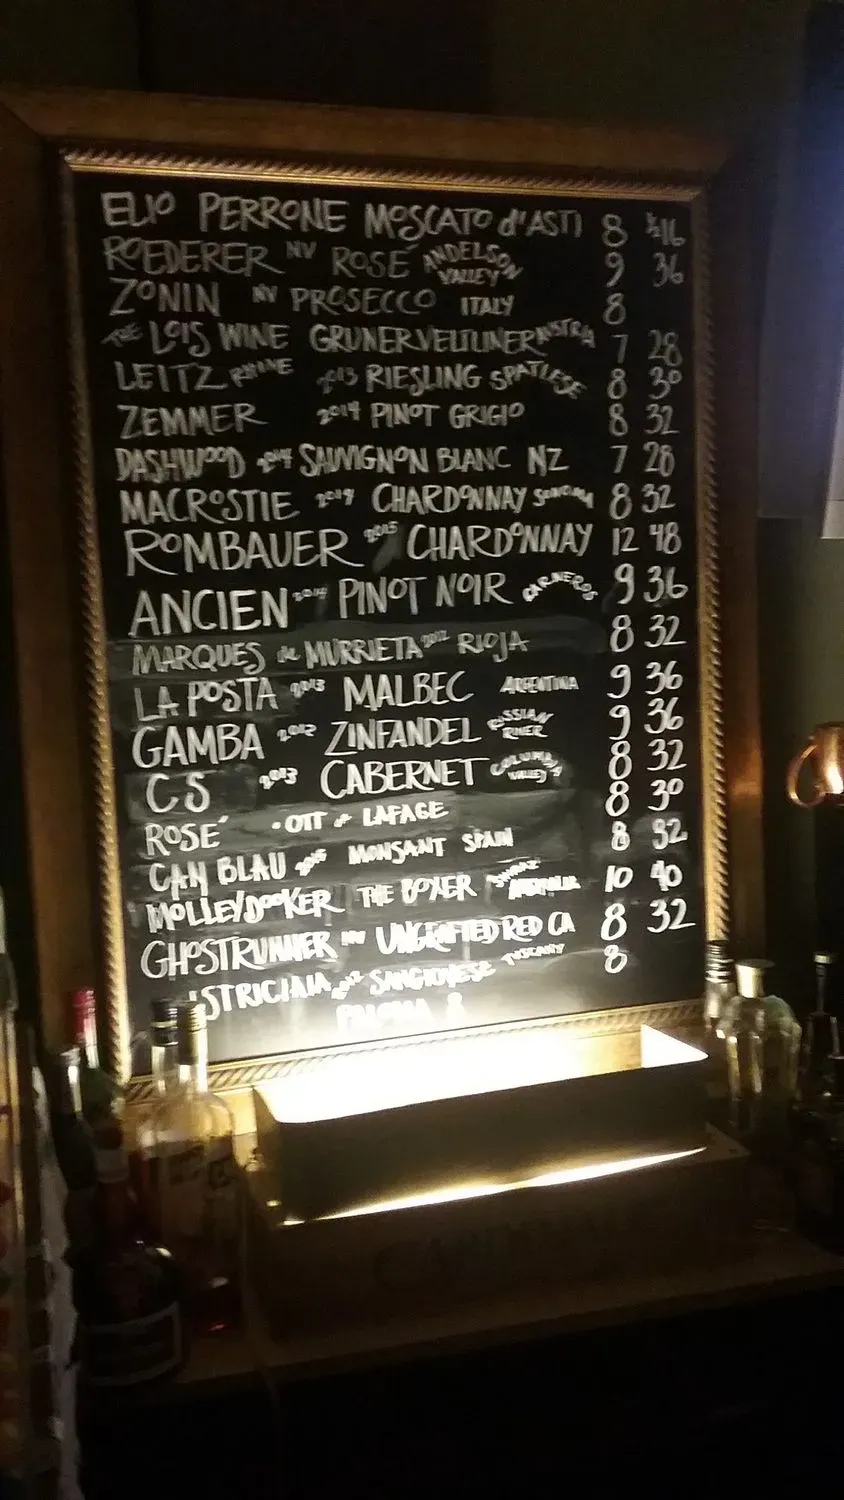 ELIO PERRONE MOSCATO d'ASTI 8 ½16
ROEDERER NV ROSÉ ANDELSON VALLEY 9 36
ZONIN NV PROSECCO ITALY 8
THE LOIS WINE GRUNERVELTLINER AUSTRIA 7 28
LEITZ RHINE 2013 RIESLING SPATLESE 8 30
ZEMMER 2014 PINOT GRIGIO 8 32
DASHWOOD 2014 SAUVIGNON BLANC NZ 7 28
MACROSTIE 2014 CHARDONNAY SONOMA 8 32
ROMBAUER 2015 CHARDONNAY 12 48
ANCIEN 2014 PINOT NOIR CARNEROS 9 36
MARQUES de MURRIETA 2012 RIOJA 8 32
LA POSTA 2013 MALBEC ARGENTINA 9 36
GAMBA 2012 ZINFANDEL RUSSIAN RIVER 9 36
CS 2013 CABERNET COLUMBIA VALLEY 8 32
ROSÉ • OTT LAFAGE 8 30
CAN BLAU MONSANT SPAIN 8 32
MOLLEYDOOKER THE BOXER SHIRAZ AUSTRALIA 10 40
GHOSTRUNNER NV UNGRAFTED RED CA 8 32
STRICIAIA 2012 SANGIOVESE TUSCANY 8
PALOMA 8